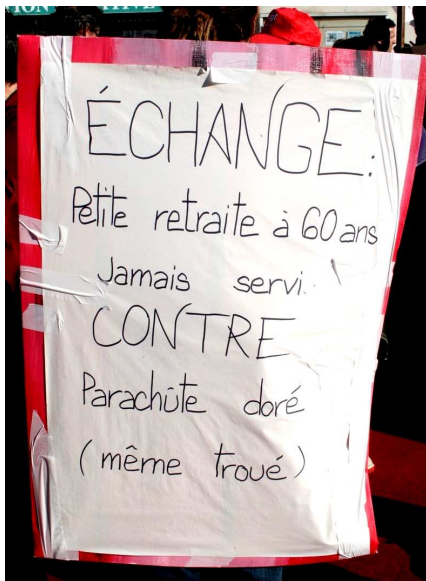 ÉCHANGE:
Petite retraite à 60 ans
Jamais servi.
CONTRE
Parachûte doré
(même troué)